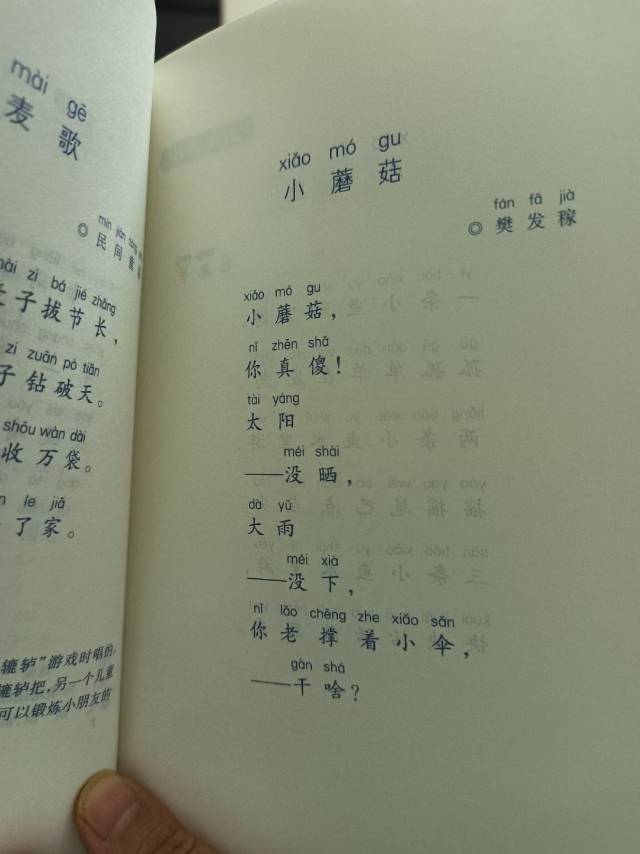 mài gē
麦歌
mín jiān
◎民间童
zi bá jié zhǎng
子拔节长，
zi zuān pò tiān
子钻破天。
shōu wàn dài
收万袋。
le jiā
了家。
辘轳”游戏时唱的，
辘轳把，另一个儿童
可以锻炼小朋友的
xiǎo mó gu
小蘑菇
fán fā jià
◎樊发稼
xiǎo mó gu
小蘑菇，
nǐ zhēn shǎ
你真傻！
tài yáng
太阳
méi shài
——没晒，
dà yǔ
大雨
méi xià
——没下，
nǐ lǎo chēng zhe xiǎo sǎn
你老撑着小伞，
gàn shá
——干啥？